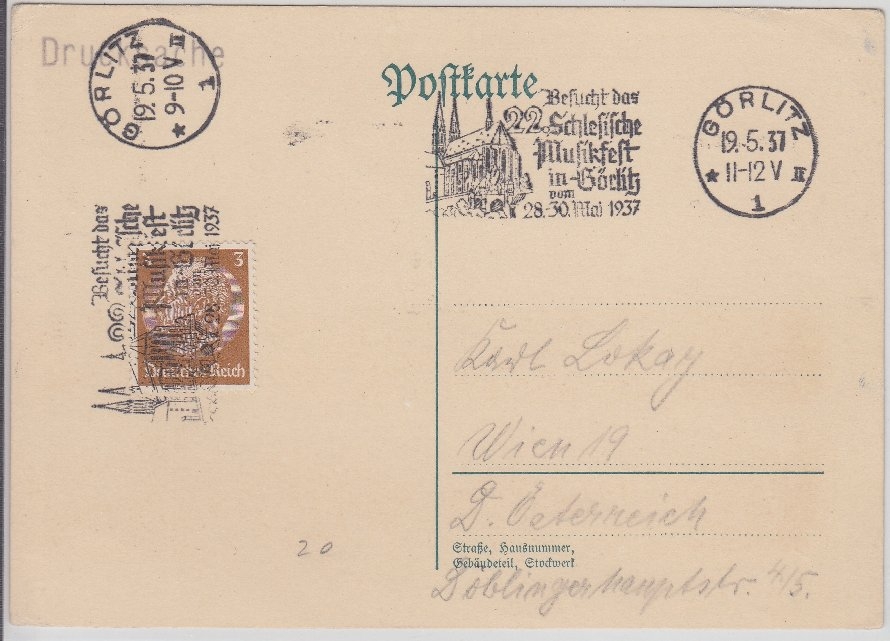 Drucksache
GÖRLITZ
19.5.37
9-10 V
★ II
1
Postkarte
Besucht das
22. Schlesische
Musikfest
in Görlitz
vom
28.-30. Mai 1937
GÖRLITZ
19.5.37
★ 11-12 V II
1
Besucht das
22. Schlesische
Musikfest
in Görlitz
1937
3
Deutsches Reich
Karl Lokay
Wien 19
D. Österreich
Straße, Hausnummer,
Gebäudeteil, Stockwerk
Döblingerhauptstr. 4/5.
20